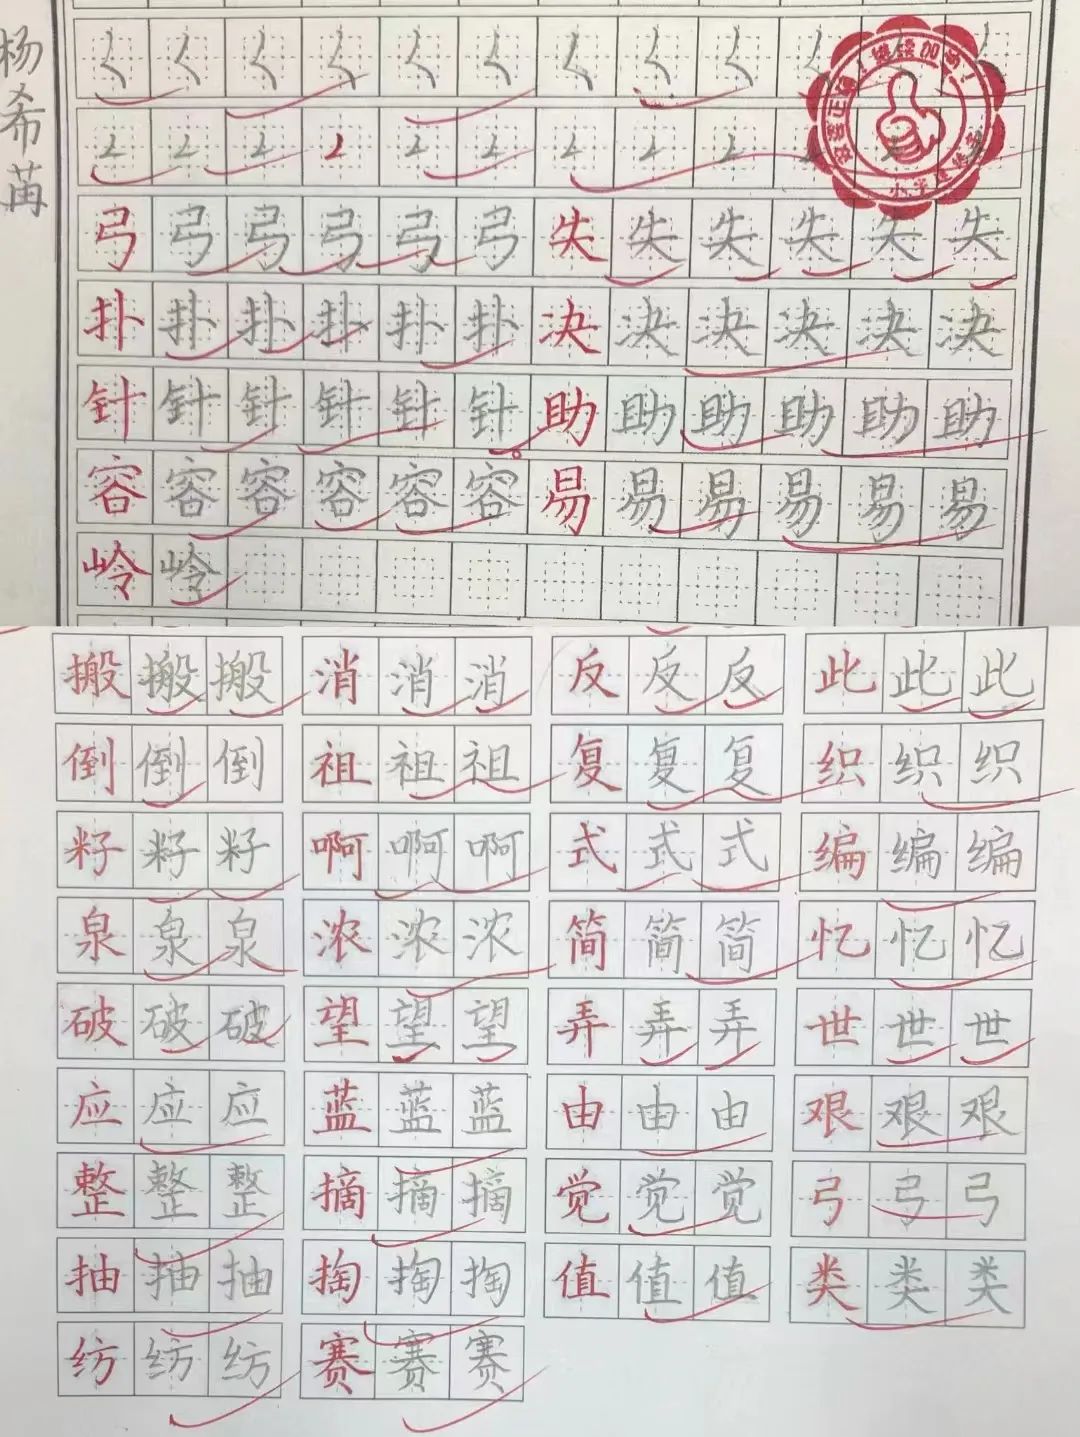 杨希苒
弓弓弓弓弓弓失失失失失失
扑扑扑扑扑扑决决决决决决
针针针针针针助助助助助助
容容容容容容易易易易易易
岭岭
搬搬搬消消消反反反此此此
倒倒倒祖祖祖复复复织织织
籽籽籽啊啊啊式式式编编编
泉泉泉浓浓浓简简简忆忆忆
破破破望望望弄弄弄世世世
应应应蓝蓝蓝由由由艰艰艰
整整整摘摘摘觉觉觉弓弓弓
抽抽抽掏掏掏值值值类类类
纺纺纺赛赛赛